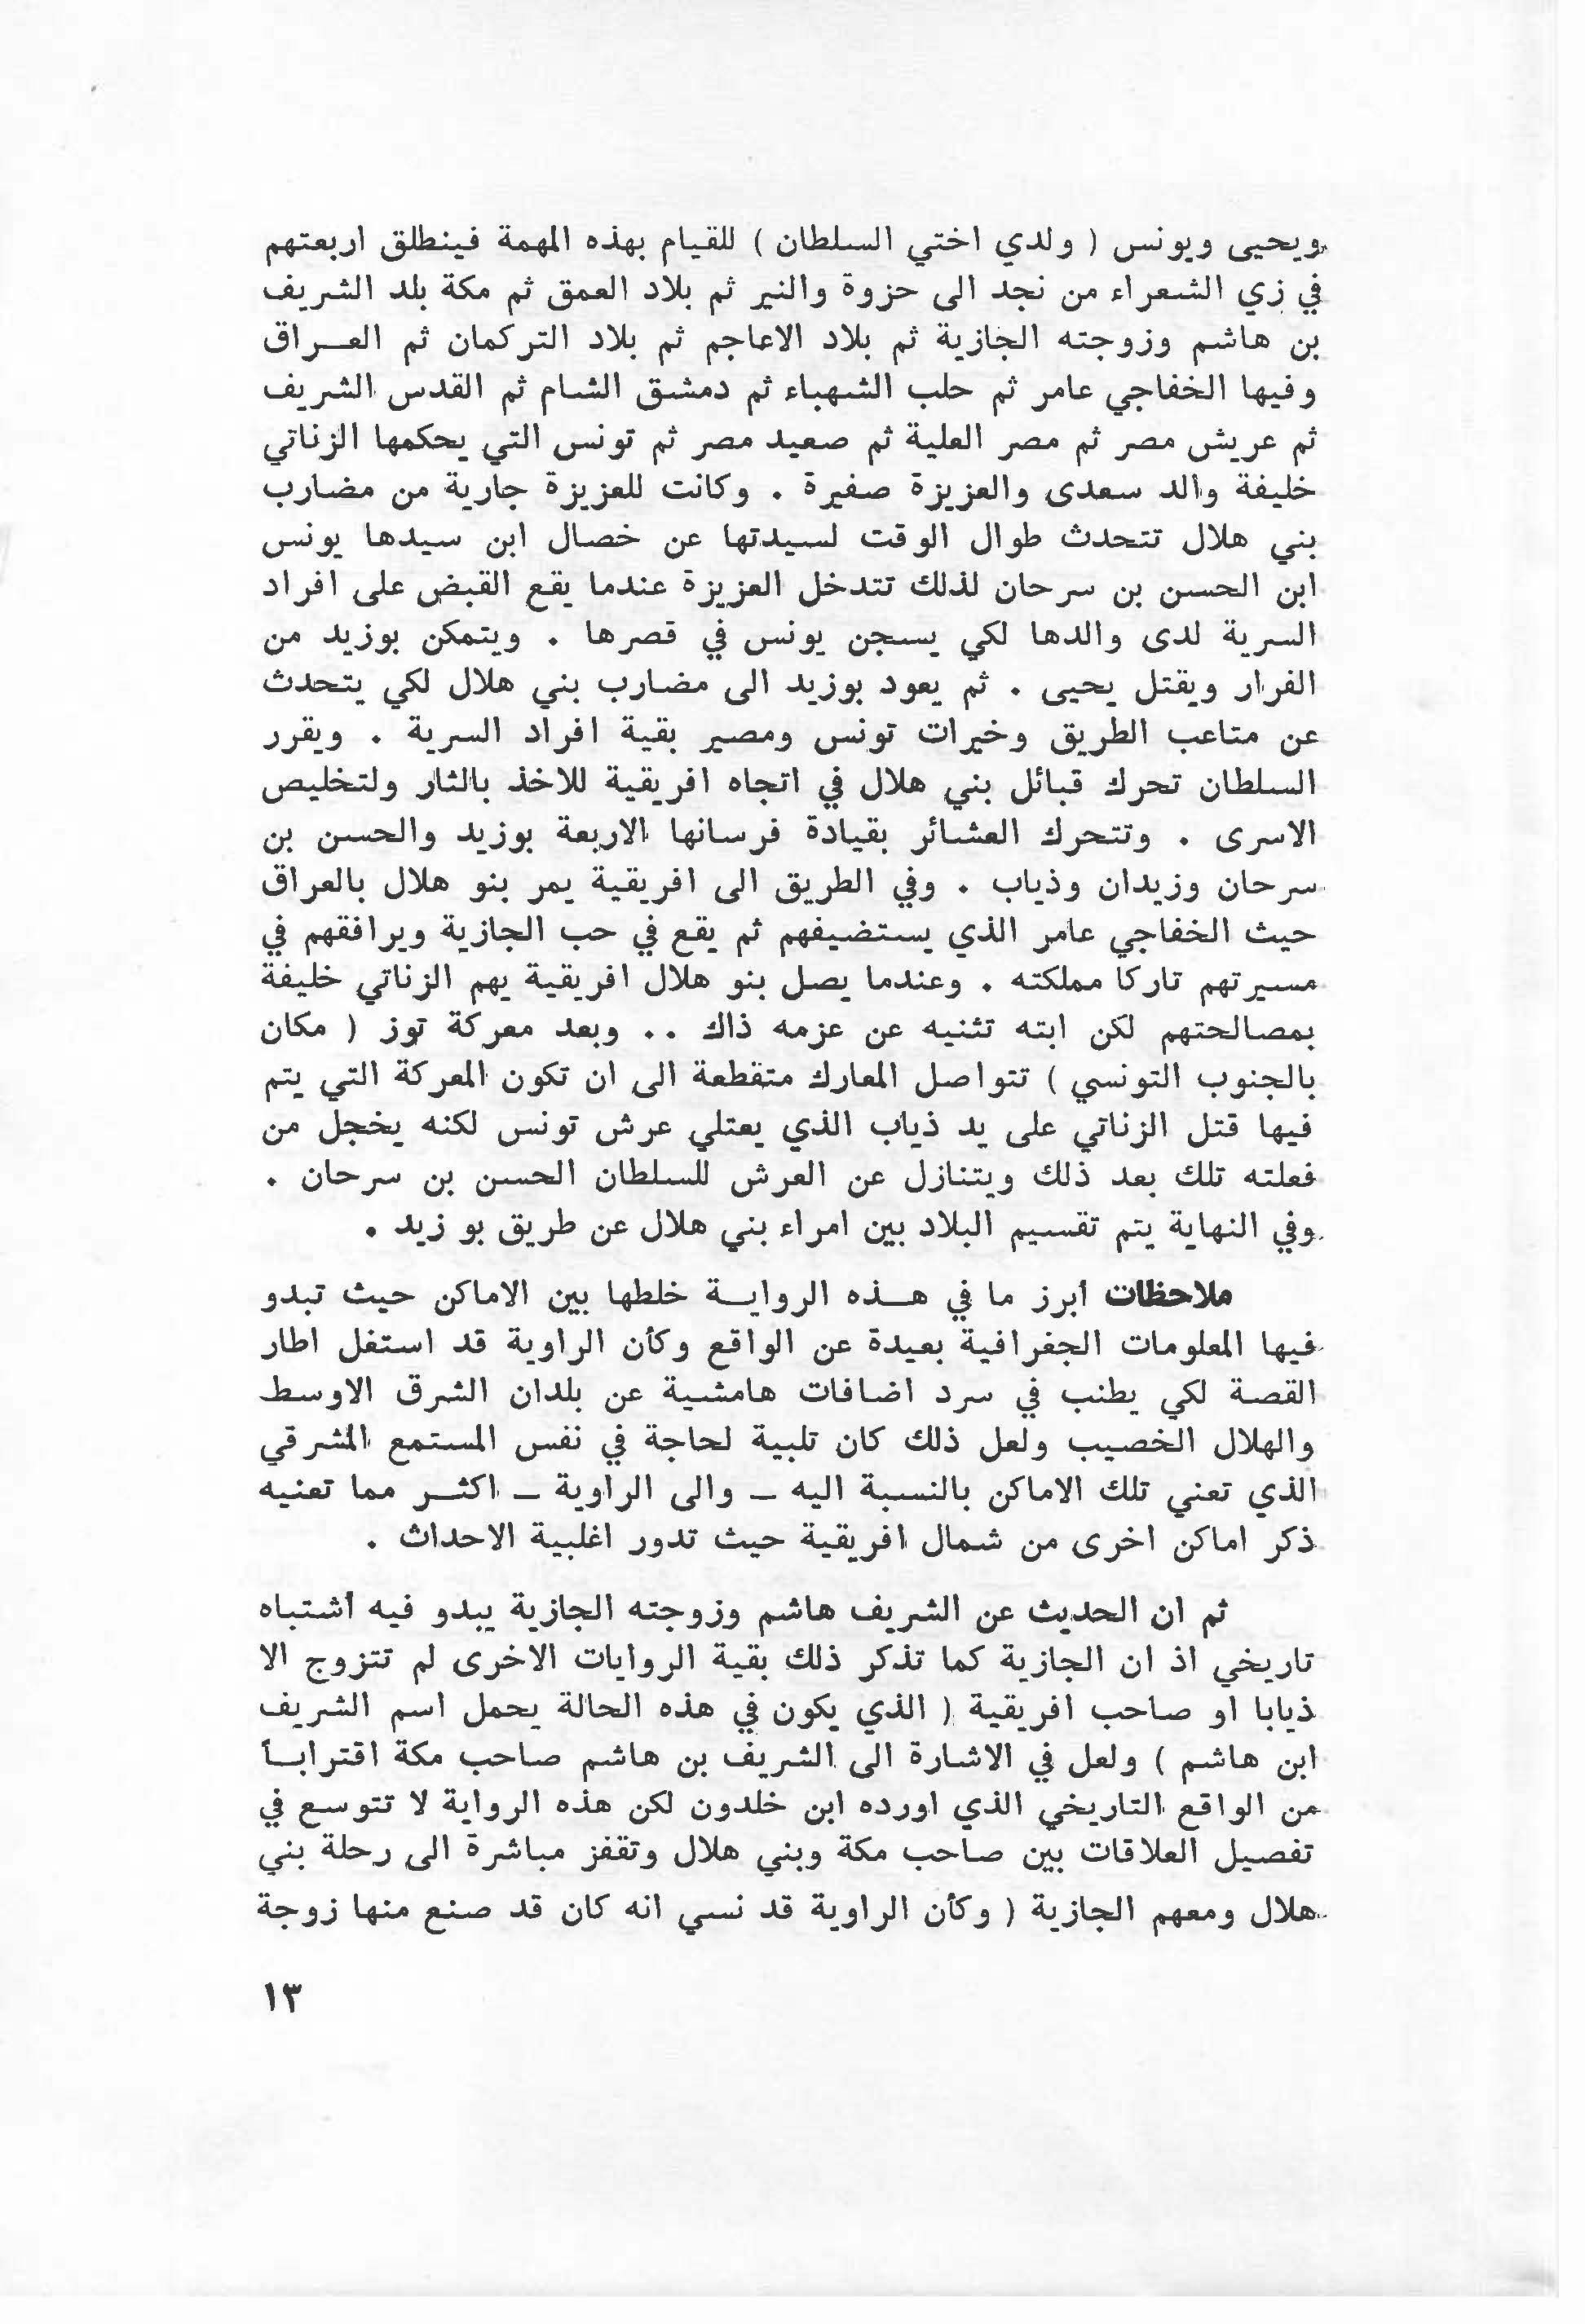 ويحيى ويونس ( ولدي اختي السلطان ) للقيام بهذه المهمة فينطلق اربعتهم
في زي الشعراء من نجد الى حزوة والنير ثم بلاد العمق ثم مكة بلد الشريف
بن هاشم وزوجته الجازية ثم بلاد الاعاجم ثم بلاد التركمان ثم العـراق
وفيها الخفاجي عامر ثم حلب الشهباء ثم دمشق الشام ثم القدس الشريف
ثم عريش مصر ثم مصر العلية ثم صعيد مصر ثم تونس التي يحكمها الزناتي
خليفة والد سعدى والعزيزة صغيرة . وكانت للعزيزة جارية من مضارب
بني هلال تتحدث طوال الوقت لسيدتها عن خصال ابن سيدها يونس
ابن الحسن بن سرحان لذلك تتدخل العزيزة عندما يقع القبض على افراد
السرية لدى والدها لكي يسجن يونس في قصرها . ويتمكن بوزيد من
الفرار ويقتل يحيى . ثم يعود بوزيد الى مضارب بني هلال لكي يتحدث
عن متاعب الطريق وخيرات تونس ومصير بقية افراد السرية . ويقرر
السلطان تحرك قبائل بني هلال في اتجاه افريقية للاخذ بالثار ولتخليص
الاسرى . وتتحرك العشائر بقيادة فرسانها الاربعة بوزيد والحسن بن
سرحان وزيدان وذياب . وفي الطريق الى افريقية يمر بنو هلال بالعراق
حيث الخفاجي عامر الذي يستضيفهم ثم يقع في حب الجازية ويرافقهم في
مسيرتهم تاركا مملكته . وعندما يصل بنو هلال افريقية يهم الزناتي خليفة
بمصالحتهم لكن ابته تثنيه عن عزمه ذاك .. وبعد معركة توز ( مكان
بالجنوب التونسي ) تتواصل المعارك متقطعة الى ان تكون المعركة التي يتم
فيها قتل الزناتي على يد ذياب الذي يعتلي عرش تونس لكنه يخجل من
فعلته تلك بعد ذلك ويتنازل عن العرش للسلطان الحسن بن سرحان .
وفي النهاية يتم تقسيم البلاد بين امراء بني هلال عن طريق بو زيد .
ملاحظات أبرز ما في هـذه الروايـة خلطها بين الاماكن حيث تبدو
فيها المعلومات الجغرافية بعيدة عن الواقع وكأن الراوية قد استغل اطار
القصة لكي يطنب في سرد اضافات هامشية عن بلدان الشرق الاوسط
والهلال الخصيب ولعل ذلك كان تلبية لحاجة في نفس المستمع المشرقي
الذي تعني تلك الاماكن بالنسبة اليه ــ والى الراوية ــ اكثـر مما تعنيه
ذكر اماكن اخرى من شمال افريقية حيث تدور اغلبية الاحداث .
ثم ان الحديث عن الشريف هاشم وزوجته الجازية يبدو فيه أشتباه
تاريخي اذ ان الجازية كما تذكر ذلك بقية الروايات الاخرى لم تتزوج الا
ذيابا او صاحب افريقية ( الذي يكون في هذه الحالة يحمل اسم الشريف
ابن هاشم ) ولعل في الاشارة الى الشريف بن هاشم صاحب مكة اقترابـاً
من الواقع التاريخي الذي اورده ابن خلدون لكن هذه الرواية لا تتوسع في
تفصيل العلاقات بين صاحب مكة وبني هلال وتقفز مباشرة الى رحلة بني
هلال ومعهم الجازية ( وكأن الراوية قد نسي انه كان قد صنع منها زوجة
١٣